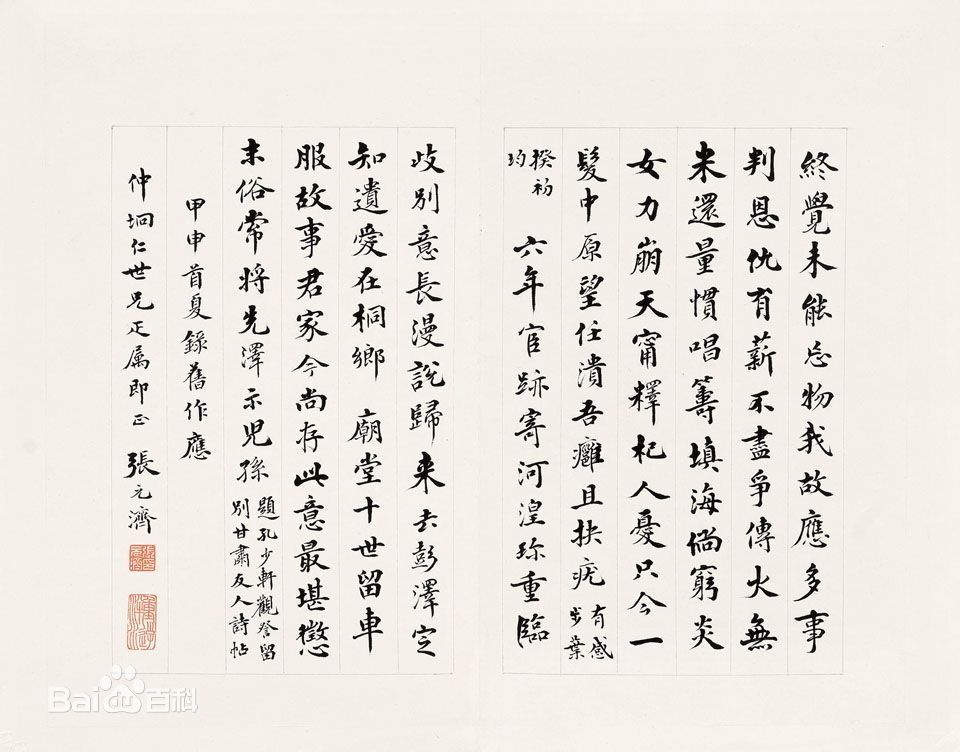 終覺未能忘物我故應多事
判恩仇有薪不盡爭傳火無
米還量慣唱籌填海倘窮炎
女力崩天甯釋杞人憂只今一
髮中原望任潰吾癰且抉疣 有感
步葉
揆初
均 六年官跡寄河湟珍重臨
歧別意長漫說歸来去彭澤定
知遺愛在桐鄉 廟堂十世留車
服故事君家今尚存此意最堪懲
末俗常將先澤示児孫 題孔少軒觀詧留
別甘肅友人詩帖
甲申首夏錄舊作應
仲坰仁世兄正属即正 張元濟
Bai 百科